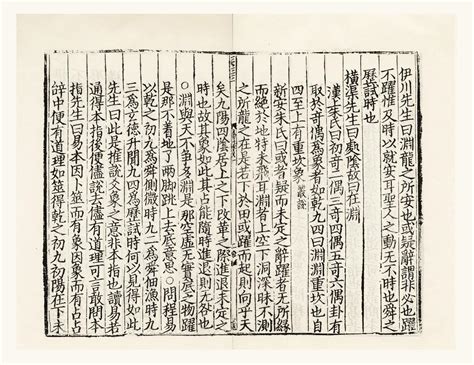 伊川先生曰淵龍之所安也或疑辭謂非必也躍
不躍惟及時以就安耳聖人之動无不時也舜之
歷試時也
橫渠先生曰處陰故曰在淵
漢上朱氏曰初奇二偶三奇四偶五奇六偶卦有
取於奇偶為象者如此乾九四曰淵淵重坎也自
四至上有重坎象叢說
新安朱氏曰或者疑而未定之辭躍者无所緣
而絶於地特未飛耳淵者上空下洞深昧不測
之所龍之在是若下於田或躍而起則向乎天
矣九陽四陰居上之下改革之際進退未定之
時也故其象如此其占能隨時進退則无咎也
○淵與天不爭多淵是那空虛无實底之物躍
是那不著地了兩脚跳上去底意思○問程易
以乾之初九為舜側微時九二為舜佃漁時九
三為玄德升聞九四為歷試時何以見得如此
先生曰此是推說爻象之意非本指也讀易若
通得本指後便儘說去儘有道理可言敢問本
指先生曰易本因卜筮而有象因象而有占占
辭中便有道理如筮得乾之初九初陽在下未